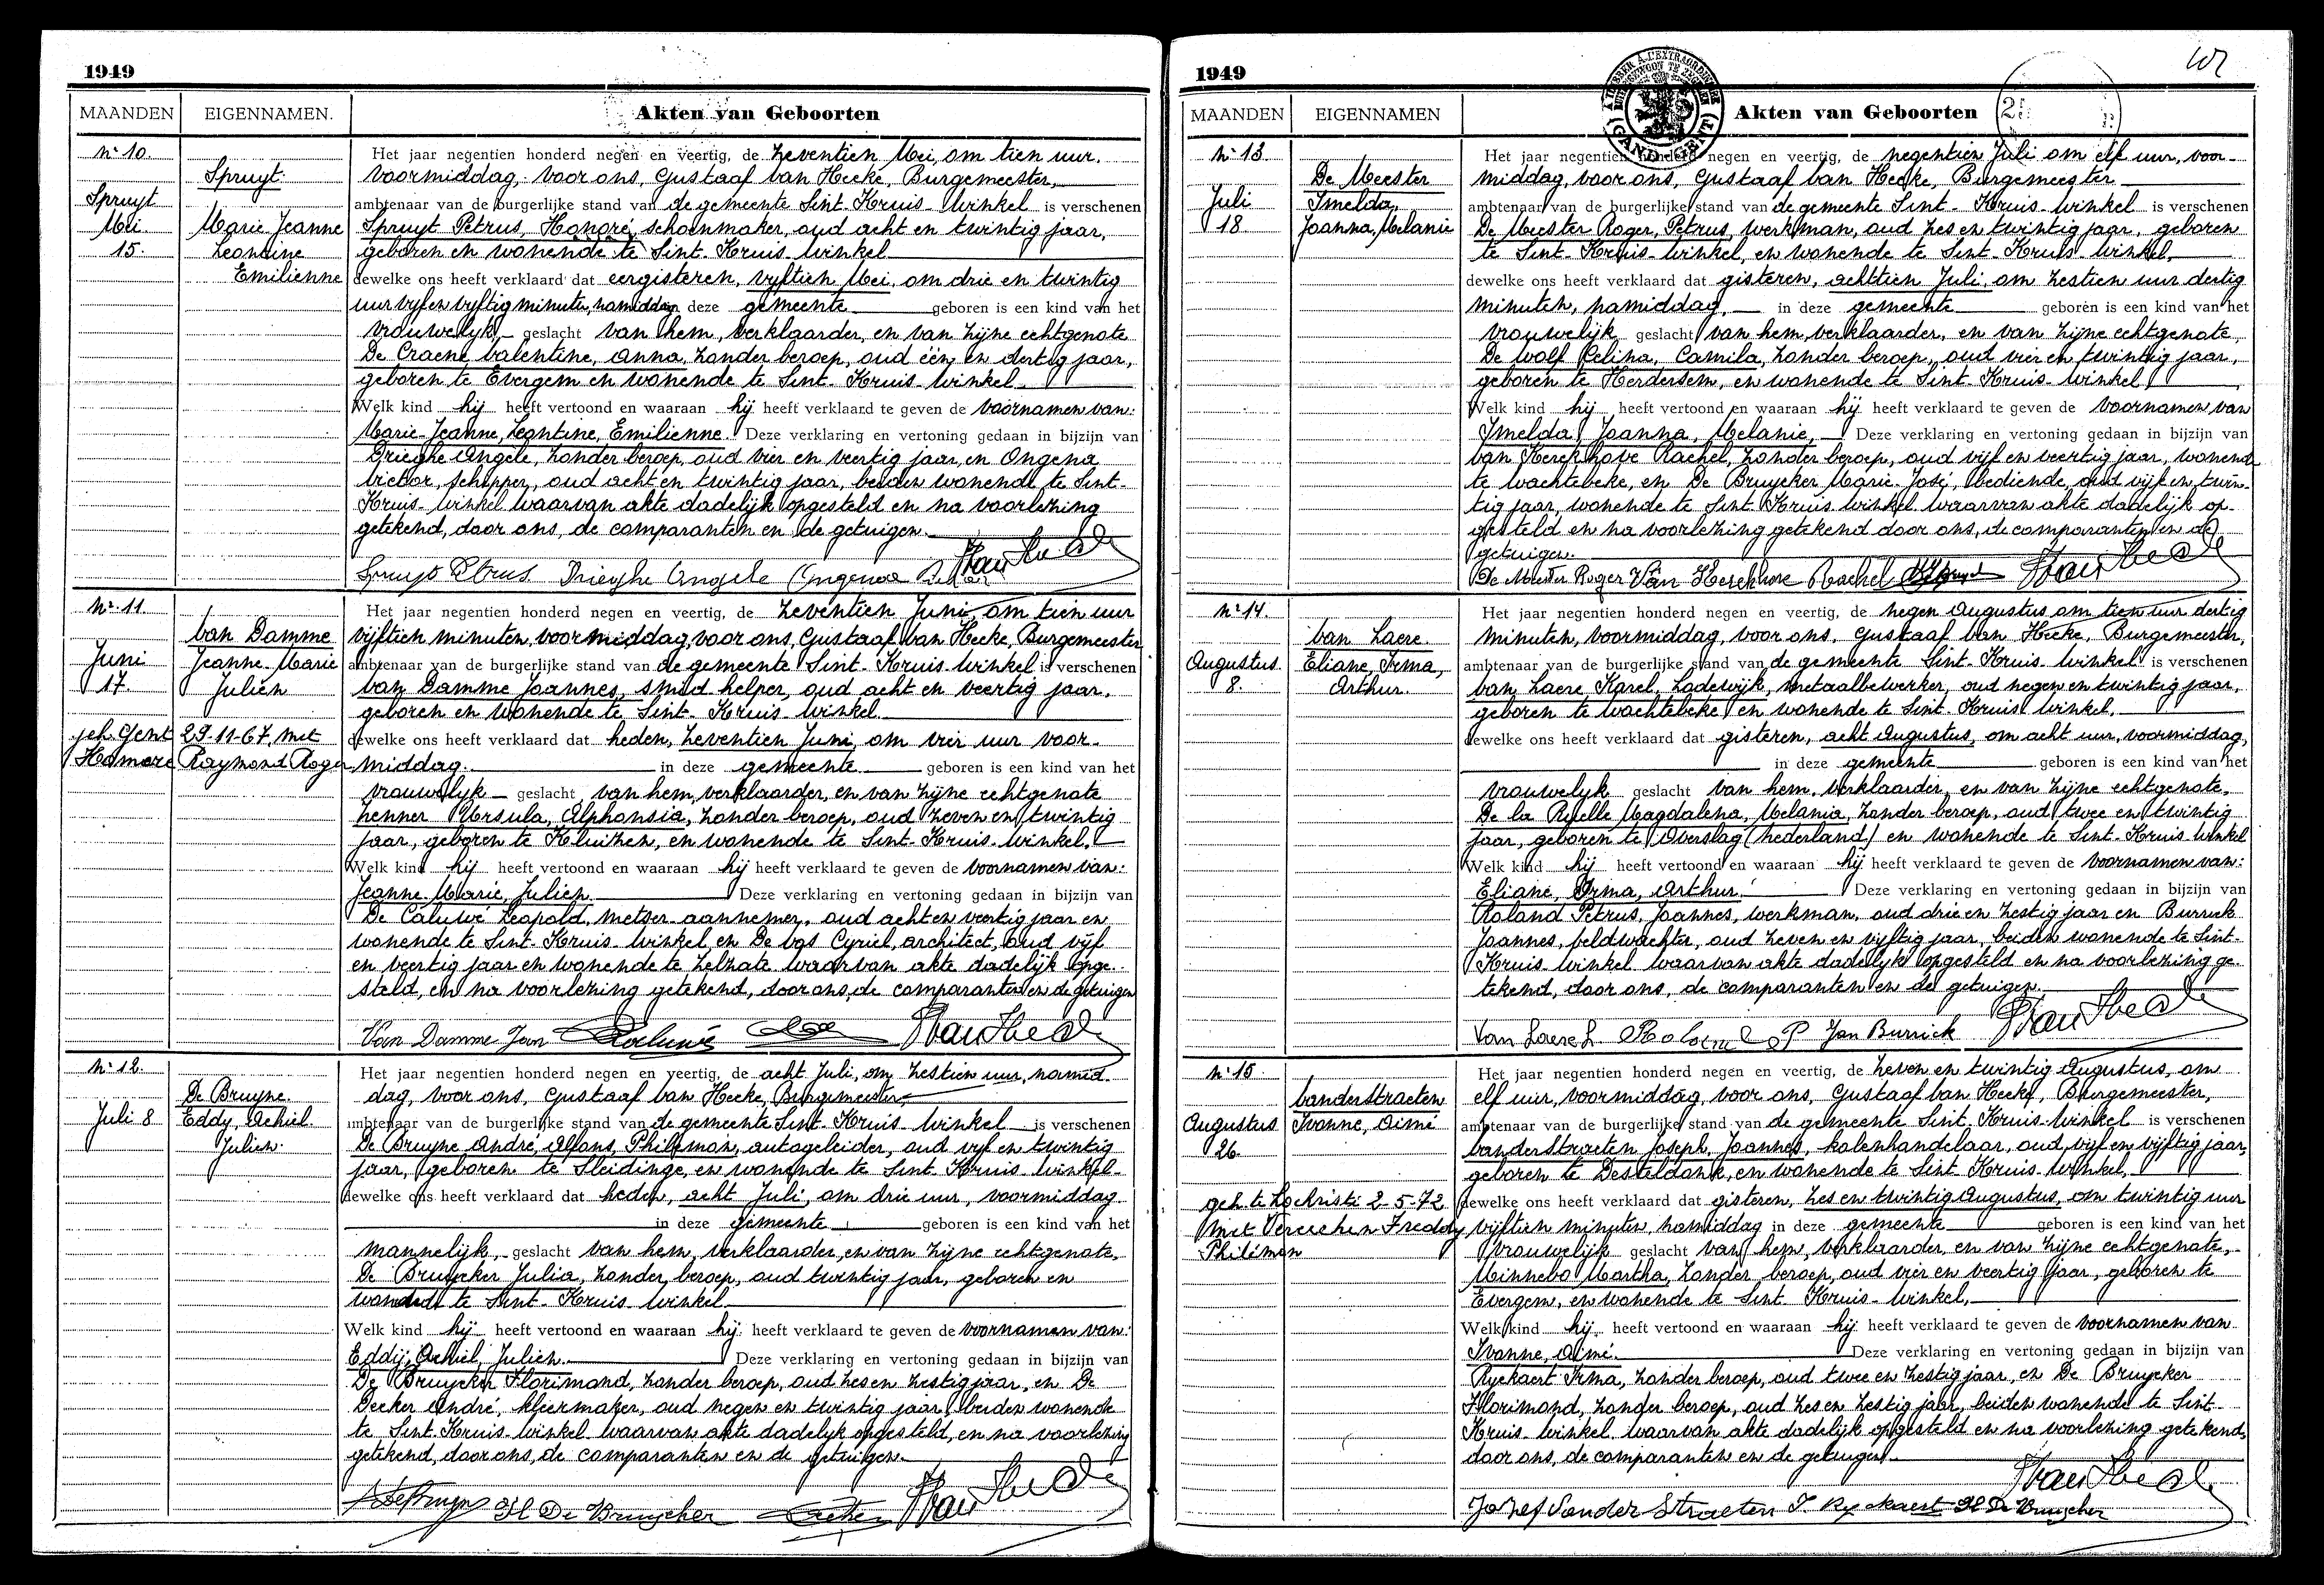 1949
MAANDEN EIGENNAMEN. Akten van Geboorten
No 10.
Spruyt
Mei.
15.
Spruyt.
Marie Jeanne
Leontine
Emilienne
Het jaar negentien honderd negen en veertig, de zeventien Mei, om tien uur.
voormiddag, voor ons, Gustaaf Van Hecke, Burgemeester,
ambtenaar van de burgerlijke stand van de gemeente Sint-Kruis-Winkel is verschenen
Spruyt Petrus, Honoré, schoenmaker, oud acht en twintig jaar,
geboren en wonende te Sint-Kruis-Winkel
dewelke ons heeft verklaard dat eergisteren, vijftien Mei, om drie en twintig
uur vijf en vijftig minuten, namiddag in deze gemeente geboren is een kind van het
vrouwelijk geslacht van hem, verklaarder, en van zijne echtgenote
De Craene Valentine, Anna, zonder beroep, oud één en dertig jaar,
geboren te Evergem en wonende te Sint-Kruis-Winkel
Welk kind hij heeft vertoond en waaraan hij heeft verklaard te geven de voornamen van:
Marie-Jeanne, Leontine, Emilienne. Deze verklaring en vertoning gedaan in bijzijn van
Drieghe Angele, zonder beroep, oud vier en veertig jaar, en Ongena
Victor, schipper, oud acht en twintig jaar, beiden wonende te Sint-
Kruis-Winkel waarvan akte dadelijk opgesteld en na voorlezing
getekend, door ons, de comparanten en de getuigen.
Spruyt Petrus Drieghe Angele
No 11.
Juni
17.
geh. Gent 29-11-67 met
Homere Raymond Roger
Van Damme
Jeanne-Marie
Julien
Het jaar negentien honderd negen en veertig, de zeventien Juni om tien uur
vijftien minuten, voormiddag, voor ons, Gustaaf Van Hecke, Burgemeester
ambtenaar van de burgerlijke stand van de gemeente Sint-Kruis-Winkel is verschenen
Van Damme Joannes, smid helper, oud acht en veertig jaar,
geboren en wonende te Sint-Kruis-Winkel.
dewelke ons heeft verklaard dat heden, zeventien Juni, om vier uur voor-
middag. in deze gemeente geboren is een kind van het
vrouwelijk geslacht van hem, verklaarder, en van zijne echtgenote
Henner Ursula, Alphonsia, zonder beroep, oud zeven en twintig
jaar, geboren te Kluizen, en wonende te Sint-Kruis-Winkel.
Welk kind hij heeft vertoond en waaraan hij heeft verklaard te geven de voornamen van:
Jeanne-Marie, Julien. Deze verklaring en vertoning gedaan in bijzijn van
De Caluwé Leopold, metser-aannemer, oud acht en veertig jaar en
wonende te Sint-Kruis-Winkel en De Vos Cyriel, architect, oud vijf
en veertig jaar en wonende te Zelzate waarvan akte dadelijk opge-
steld, en na voorlezing getekend, door ons, de comparanten en de getuigen
Van Damme Jan
No 12.
Juli 8
De Bruyne.
Eddy, Achiel.
Julien.
Het jaar negentien honderd negen en veertig, de acht Juli, om zestien uur, namid-
dag, voor ons, Gustaaf Van Hecke, Burgemeester,
ambtenaar van de burgerlijke stand van de gemeente Sint-Kruis-Winkel is verschenen
De Bruyne André, Alfons, Philemon, autogeleider, oud vijf en twintig
jaar, geboren te Sleidinge, en wonende te Sint-Kruis-Winkel
dewelke ons heeft verklaard dat heden, acht Juli, om drie uur, voormiddag
in deze gemeente geboren is een kind van het
mannelijk, geslacht van hem, verklaarder, en van zijne echtgenote,
De Bruycker Julia, zonder beroep, oud twintig jaar, geboren en
wonende te Sint-Kruis-Winkel
Welk kind hij heeft vertoond en waaraan hij heeft verklaard te geven de voornamen van:
Eddij, Achiel, Julien. Deze verklaring en vertoning gedaan in bijzijn van
De Bruycker Florimond, zonder beroep, oud zes en zestig jaar, en De
Decker André, kleermaker, oud negen en twintig jaar, beiden wonende
te Sint-Kruis-Winkel waarvan akte dadelijk opgesteld, en na voorlezing
getekend, door ons, de comparanten en de getuigen.
Fl De Bruycker
1949
MAANDEN EIGENNAMEN Akten van Geboorten
No 13.
Juli
18.
De Meester
Imelda,
Joanna, Melanie
Het jaar negentien honderd negen en veertig, de negentien Juli om elf uur, voor-
middag, voor ons, Gustaaf Van Hecke, Burgemeester
ambtenaar van de burgerlijke stand van de gemeente Sint-Kruis-Winkel is verschenen
De Meester Roger, Petrus, werkman, oud zes en twintig jaar, geboren
te Sint-Kruis-Winkel, en wonende te Sint-Kruis-Winkel,
dewelke ons heeft verklaard dat gisteren, achttien Juli, om zestien uur dertig
minuten, namiddag, in deze gemeente geboren is een kind van het
vrouwelijk geslacht van hem verklaarder, en van zijne echtgenote
De Wolf Celina, Camila, zonder beroep, oud vier en twintig jaar,
geboren te Herdersem, en wonende te Sint-Kruis-Winkel,
Welk kind hij heeft vertoond en waaraan hij heeft verklaard te geven de voornamen van
Imelda, Joanna, Melanie, Deze verklaring en vertoning gedaan in bijzijn van
Van Kerckhove Rachel, zonder beroep, oud vijf en veertig jaar, wonende
te Wachtebeke, en De Bruycker Marie-José, bediende, oud vijf en twin-
tig jaar, wonende te Sint-Kruis-Winkel waarvan akte dadelijk op-
gesteld en na voorlezing getekend door ons, de comparanten en de
getuigen.
De Meester Roger Van Kerckhove Rachel
No 14.
Augustus
8.
Van Laere.
Eliane, Irma,
Arthur.
Het jaar negentien honderd negen en veertig, de negen Augustus om tien uur dertig
minuten, voormiddag, voor ons, Gustaaf Van Hecke, Burgemeester,
ambtenaar van de burgerlijke stand van de gemeente Sint-Kruis-Winkel is verschenen
Van Laere, Karel, Lodewijk, metaalbewerker, oud negen en twintig jaar,
geboren te Wachtebeke en wonende te Sint-Kruis-Winkel,
dewelke ons heeft verklaard dat gisteren, acht Augustus, om acht uur, voormiddag,
in deze gemeente geboren is een kind van het
vrouwelijk geslacht van hem, verklaarder, en van zijne echtgenote,
De la Ruelle Magdalena, Melania, zonder beroep, oud twee en twintig
jaar, geboren te Overslag (Nederland) en wonende te Sint-Kruis-Winkel
Welk kind hij heeft vertoond en waaraan hij heeft verklaard te geven de voornamen van:
Eliane, Irma, Arthur. Deze verklaring en vertoning gedaan in bijzijn van
Roland Petrus, Joannes, werkman, oud drie en zestig jaar en Burrick
Joannes, veldwachter, oud zeven en vijftig jaar, beiden wonende te Sint-
Kruis-Winkel waarvan akte dadelijk opgesteld en na voorlezing ge-
tekend, door ons, de comparanten en de getuigen.
Van Laere L. Roland P Jan Burrick
No 15.
Augustus
26.
geh. te Lochristi 2-5-72
met Vereecken Freddy
Philemon
Vanderstraeten
Ivonne, Aimé
Het jaar negentien honderd negen en veertig, de zeven en twintig Augustus, om
elf uur, voormiddag, voor ons, Gustaaf Van Hecke, Burgemeester,
ambtenaar van de burgerlijke stand van de gemeente Sint-Kruis-Winkel is verschenen
Vanderstraeten Joseph, Joannes, kolenhandelaar, oud vijf en vijftig jaar,
geboren te Desteldonk, en wonende te Sint-Kruis-Winkel,
dewelke ons heeft verklaard dat gisteren, zes en twintig Augustus, om twintig uur
vijftien minuten, namiddag in deze gemeente geboren is een kind van het
vrouwelijk geslacht van hem, verklaarder, en van zijne echtgenote,
Minnebo Martha, zonder beroep, oud vier en veertig jaar, geboren te
Evergem, en wonende te Sint-Kruis-Winkel,
Welk kind hij heeft vertoond en waaraan hij heeft verklaard te geven de voornamen van
Ivonne, Aimé. Deze verklaring en vertoning gedaan in bijzijn van
Ryckaert Irma, zonder beroep, oud twee en zestig jaar, en De Bruycker
Florimond, zonder beroep, oud zes en zestig jaar, beiden wonende te Sint-
Kruis-Winkel waarvan akte dadelijk opgesteld en na voorlezing getekend,
door ons, de comparanten en de getuigen.
Jozef Vander Straeten I. Ryckaert Fl De Bruycker